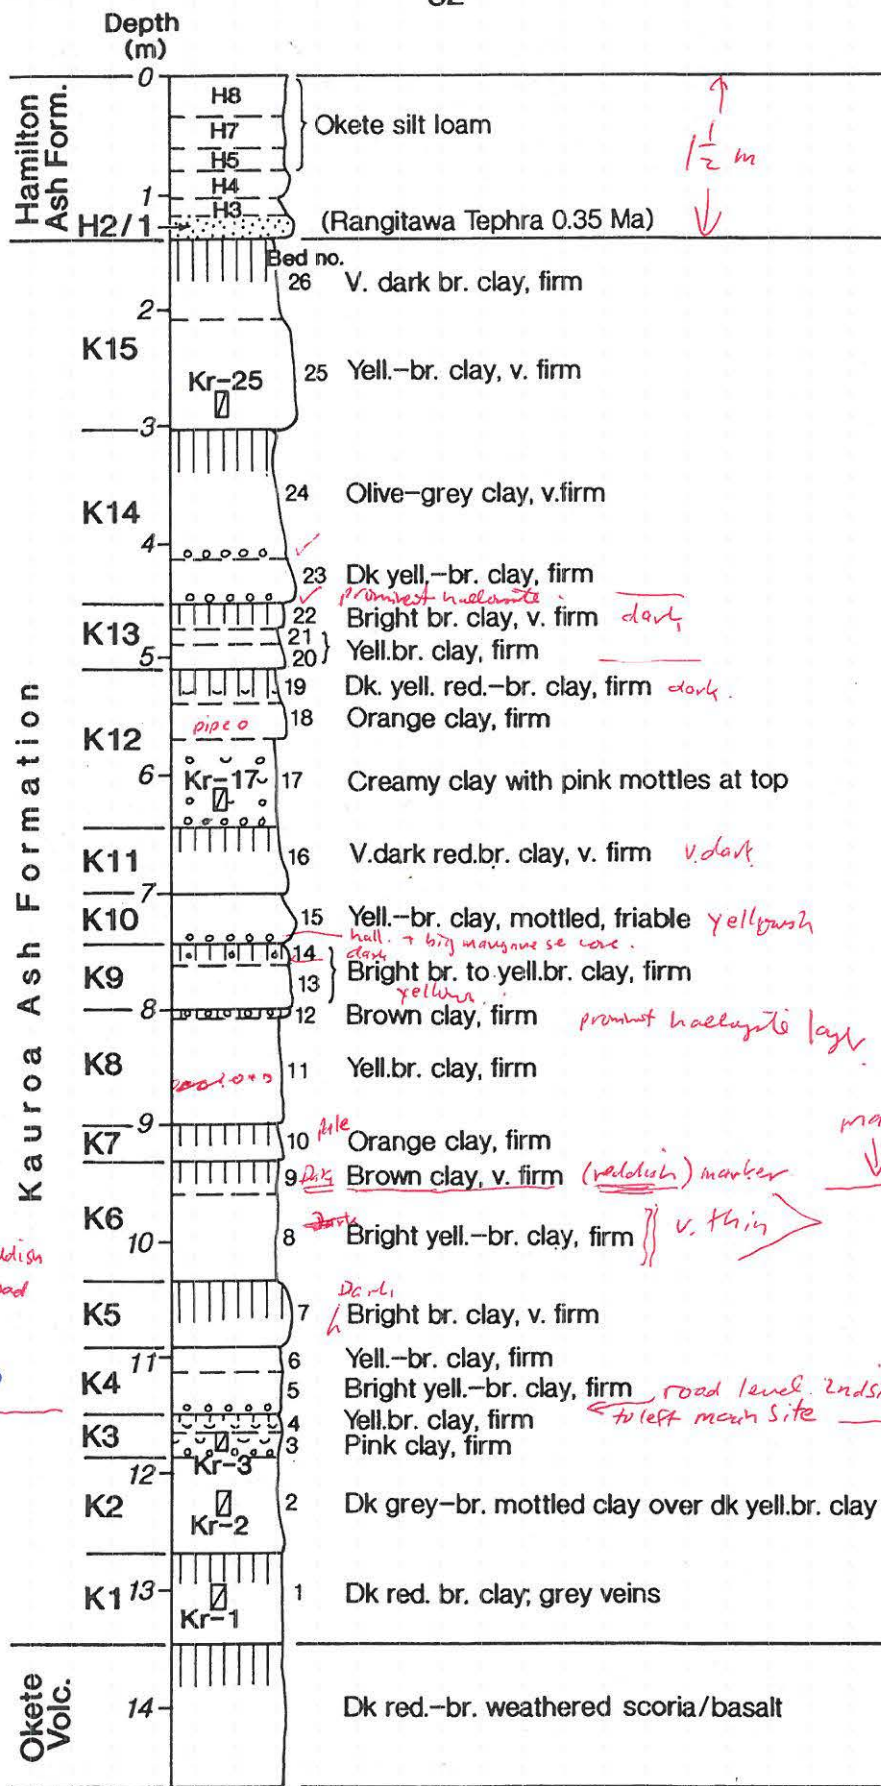 Depth
(m)
0
Hamilton
Ash Form.
H8
H7
H5
Okete silt loam
1 1/2 m
1
H4
H3
H2/1
(Rangitawa Tephra 0.35 Ma)
Kauroa Ash Formation
Bed no.
26 V. dark br. clay, firm
2
K15
Kr-25
25 Yell.-br. clay, v. firm
3
24 Olive-grey clay, v.firm
K14
4
23 Dk yell.-br. clay, firm
prominent
22 Bright br. clay, v. firm dark
K13
21
5
20 Yell.br. clay, firm
19 Dk. yell. red.-br. clay, firm dark.
18 Orange clay, firm
K12
pipe
6
Kr-17
17 Creamy clay with pink mottles at top
K11
16 V.dark red.br. clay, v. firm v.dark
7
K10
15 Yell.-br. clay, mottled, friable yellowish
hall. + big manganese conc.
14 dark
K9
13 Bright br. to yell.br. clay, firm
yellow
8
12 Brown clay, firm prominent halloysite layer
K8
11 Yell.br. clay, firm
9
K7
10 pale Orange clay, firm
9 Dark Brown clay, v. firm (reddish) marker
K6
10
8 Dark Bright yell.-br. clay, firm v. thin
Dark
K5
7 Bright br. clay, v. firm
11
6 Yell.-br. clay, firm
K4
5 Bright yell.-br. clay, firm road level
to left main site
4 Yell.br. clay, firm
K3
3 Pink clay, firm
Kr-3
12
K2
2 Dk grey-br. mottled clay over dk yell.br. clay
Kr-2
K1
13
1 Dk red. br. clay; grey veins
Kr-1
Okete
Volc.
14
Dk red.-br. weathered scoria/basalt